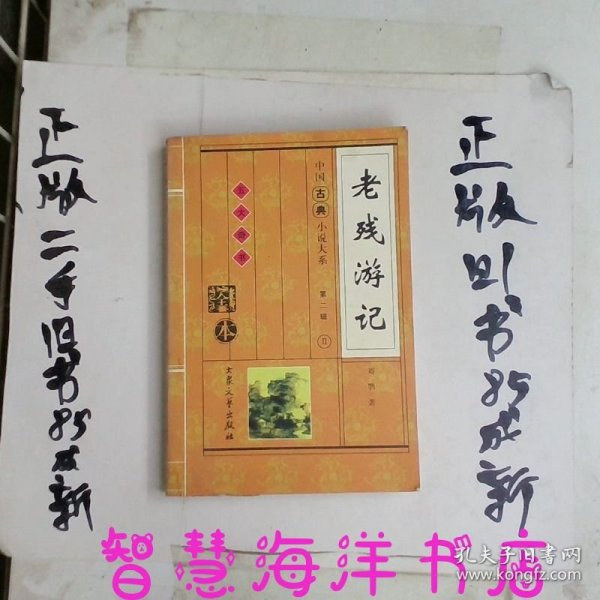 正版二手旧书85成新
老残游记
中国古典小说大系
第二辑
II
五大奇书
全本
大众文艺出版社
著
正版旧书85成新
智慧海洋书店
孔夫子旧书网
www.kongfz.com